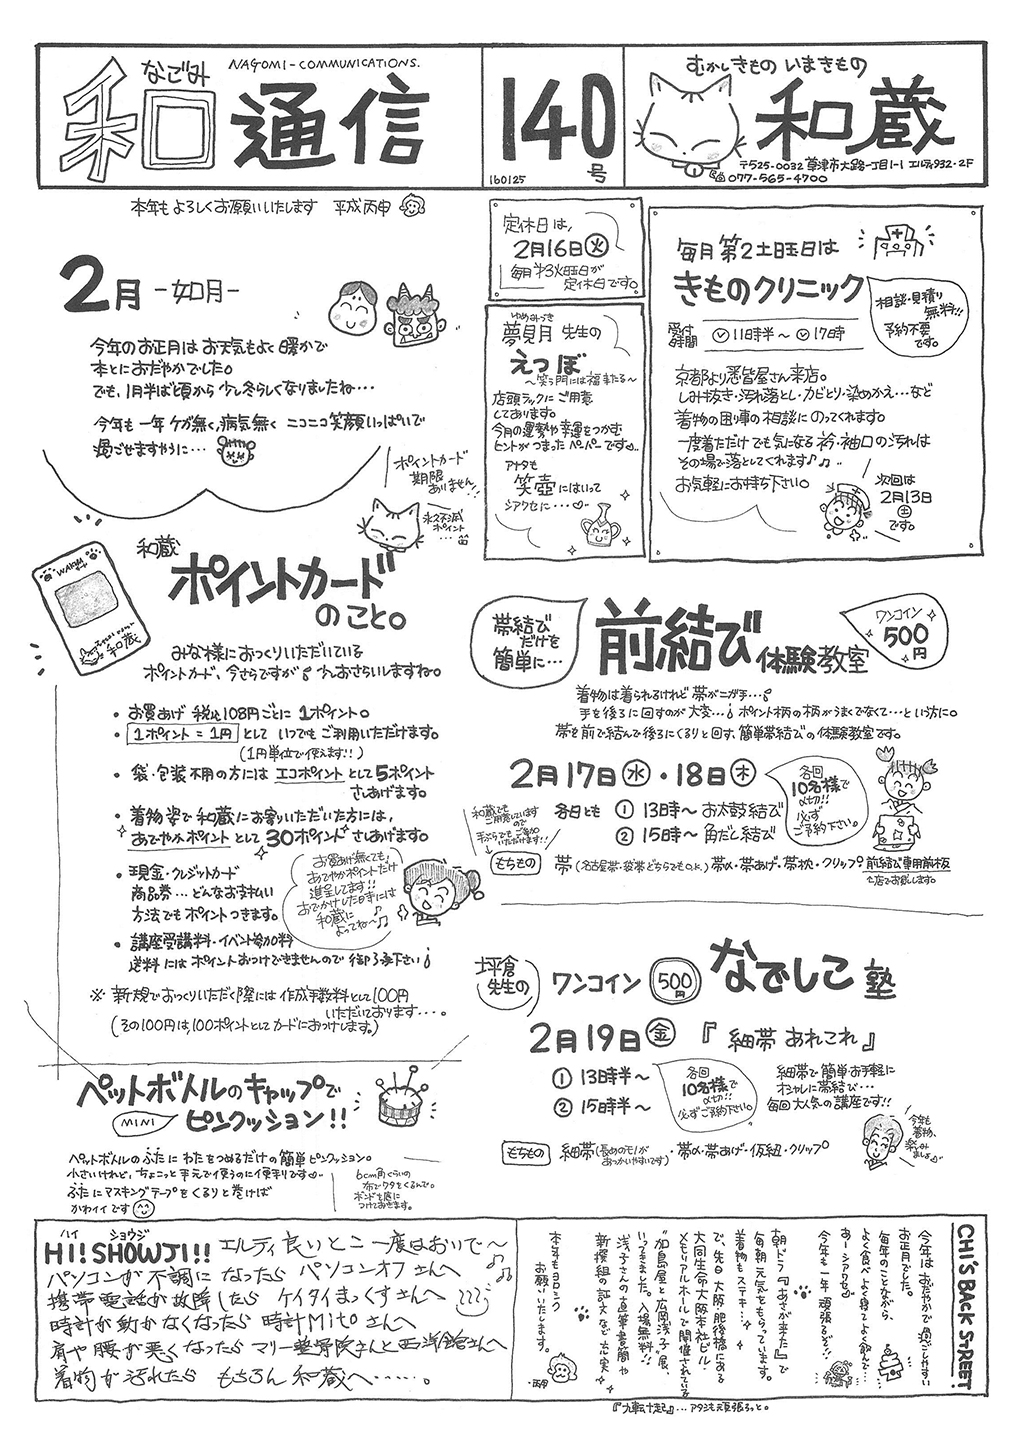 なごみ
NAGOMI-COMMUNICATIONS.
和通信
140号
160125
むかしきもの いまきもの
和蔵
〒525-0032 草津市大路一丁目1-1 エルティ932・2F
077-565-4700
本年もよろしくお願いいたします 平成丙申
2月 -如月-
今年のお正月は お天気もよく 暖かで
本とにおだやかでした。
でも、1月半ば頃から 少し冬らしくなりましたね…
今年も一年 ケガ無く、病気無く ニコニコ笑顔いっぱいで
過ごせますように…
定休日は、
2月16日㊋
毎月 第3火曜日が
定休日です。
ゆめみつき
夢見月 先生の
えつぼ
～笑う門には福来たる～
店頭ラックにご用意
しております。
今月の運勢や幸運をつかむ
ヒントがつまったペーパーです。
アナタも
笑壺にはいって
シアワセに…
毎月 第2土曜日は
きものクリニック
受付時間 11時半～17時
相談・見積り
無料!!
予約不要
です。
京都より悉皆屋さん来店。
しみ抜き・汚れ落とし・カビとり・染めかえ…など
着物の困り事の相談にのってくれます。
一度着ただけでも気になる 衿・袖口の汚れは
その場で落としてくれます♪♪
お気軽にお持ち下さい。
次回は
2月13日
㊏
です。
ポイントカード
期限
ありません!!
永久不滅
ポイント
…
和蔵
ポイントカード
のこと。
WAKURA
和蔵
みな様におつくりいただいている
ポイントカード、今さらですが 少しおさらいしますね。
・お買あげ 税込108円ごとに 1ポイント。
・1ポイント=1円 として いつでもご利用いただけます。
(1円単位で使えます!!)
・袋・包装不用の方には エコポイントとして5ポイント
さしあげます。
・着物姿で 和蔵にお寄りいただいた方には、
あでやかポイントとして 30ポイントさしあげます。
・現金・クレジットカード
商品券…どんなお支払い
方法でもポイントつきます。
お買あげ無くても
あでやかポイントだけ
進呈してます!!
おでかけした日時には
和蔵に
よってね～♪
・講座受講料・イベント参加料
送料には ポイントおつけできませんので 御了承下さい!
※ 新規でおつくりいただく際には 作成手数料として100円
いただいております…。
(その100円は、100ポイントとしてカードにおつけします。)
帯結び
だけを
簡単に…
前結び 体験教室
ワンコイン
500円
着物は着られるけれど 帯がニガ手…!
手を後ろに回すのが大変…! ポイント柄の柄がうまくでなくて…という方に。
帯を前で結んで後ろにくるりと回す、簡単帯結びの体験教室です。
2月17日㊌・18日㊍
各日とも ① 13時～ お太鼓結び
② 15時～ 角だし結び
各回
10名様で
〆切!!
必ず
ご予約下さい。
和蔵でも
ご用意しています
ので
手ぶらでもご参加
いただけます!!
もちもの 帯(名古屋帯・袋帯どちらでもO.K.) 帯〆・帯あげ・帯枕・クリップ。前結び専用前板
当店でお貸しします。
坪倉
先生の
ワンコイン 500円 なでしこ塾
2月19日㊎ 『細帯 あれこれ』
① 13時半～
② 15時半～
各回
10名様で
〆切!!
必ずご予約下さい。
細帯で簡単お手軽に
オシャレに帯結び…
毎回大人気の講座です!!
今年も
着物、
楽しみ
ましょ♪
もちもの 細帯(長めのモノが あつかいやすいです)・帯〆・帯あげ・仮紐・クリップ
ペットボトルのキャップで
MINI ピンクッション!!
ペットボトルのふたに わたをつめるだけの 簡単ピンクッション。
小さいけれど、ちょこっと手元で使うのに便利です
ふたにマスキングテープをくるりと巻けば
かわイイです
6cm角ぐらいの
布でワタをくるんで。
ボンドを底に
つけておきます。
ハイ ショウジ
HI! SHOWJI!! エルティ良いとこ 一度はおいで～♪♪
パソコンが不調になったら パソコンオフさんへ
携帯電話が故障したら ケイタイまっくすさんへ
時計が動かなくなったら 時計Mitoさんへ
肩や腰が悪くなったら マリー整骨院さんと西洋館さんへ
着物が汚れたら もちろん 和蔵へ……。
CHI'S BACK STREET
今年は おだやかで 過ごしやすい
お正月でした。
毎年のことながら、
よく食べ よく寝て よく飲んで…
あーシアワセ。
今年も一年 頑張るぞ!!
朝ドラ『あさが来た』で
毎朝 元気をもらっています。
着物もステキ…
で、先日 大阪・肥後橋にある
大同生命大阪本社ビル・
メモリアルホールで開催されている
"加島屋と広岡浅子"展、
いってきました。入場無料!!
浅子さんの直筆書簡や
新撰組の証文など 充実
本年もヨロシク
お願いいたします。
・丙申
『九転十起』…アタシも頑張るっと。